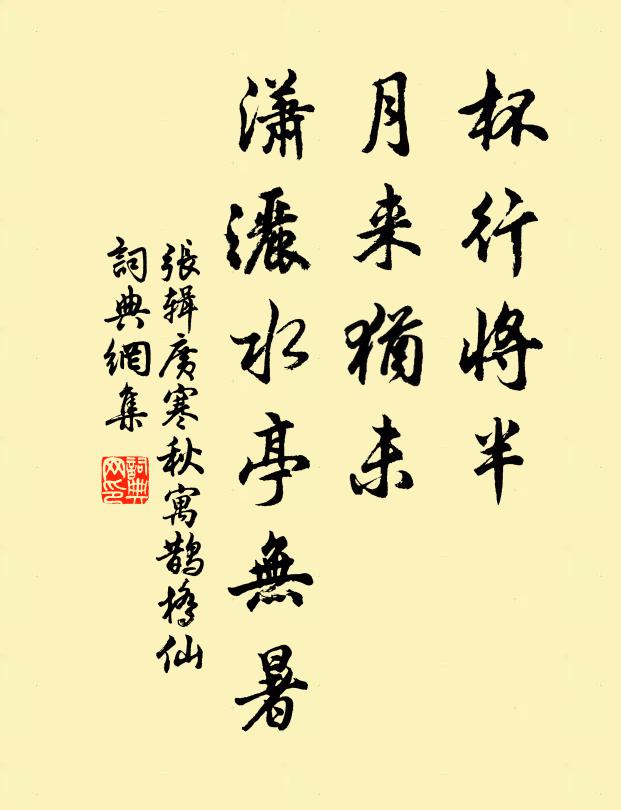 杯行将半
月来猶未
潇灑水亭無暑
張辑廣寒秋寓鹊橋仙
詞典網集
詞典
网印